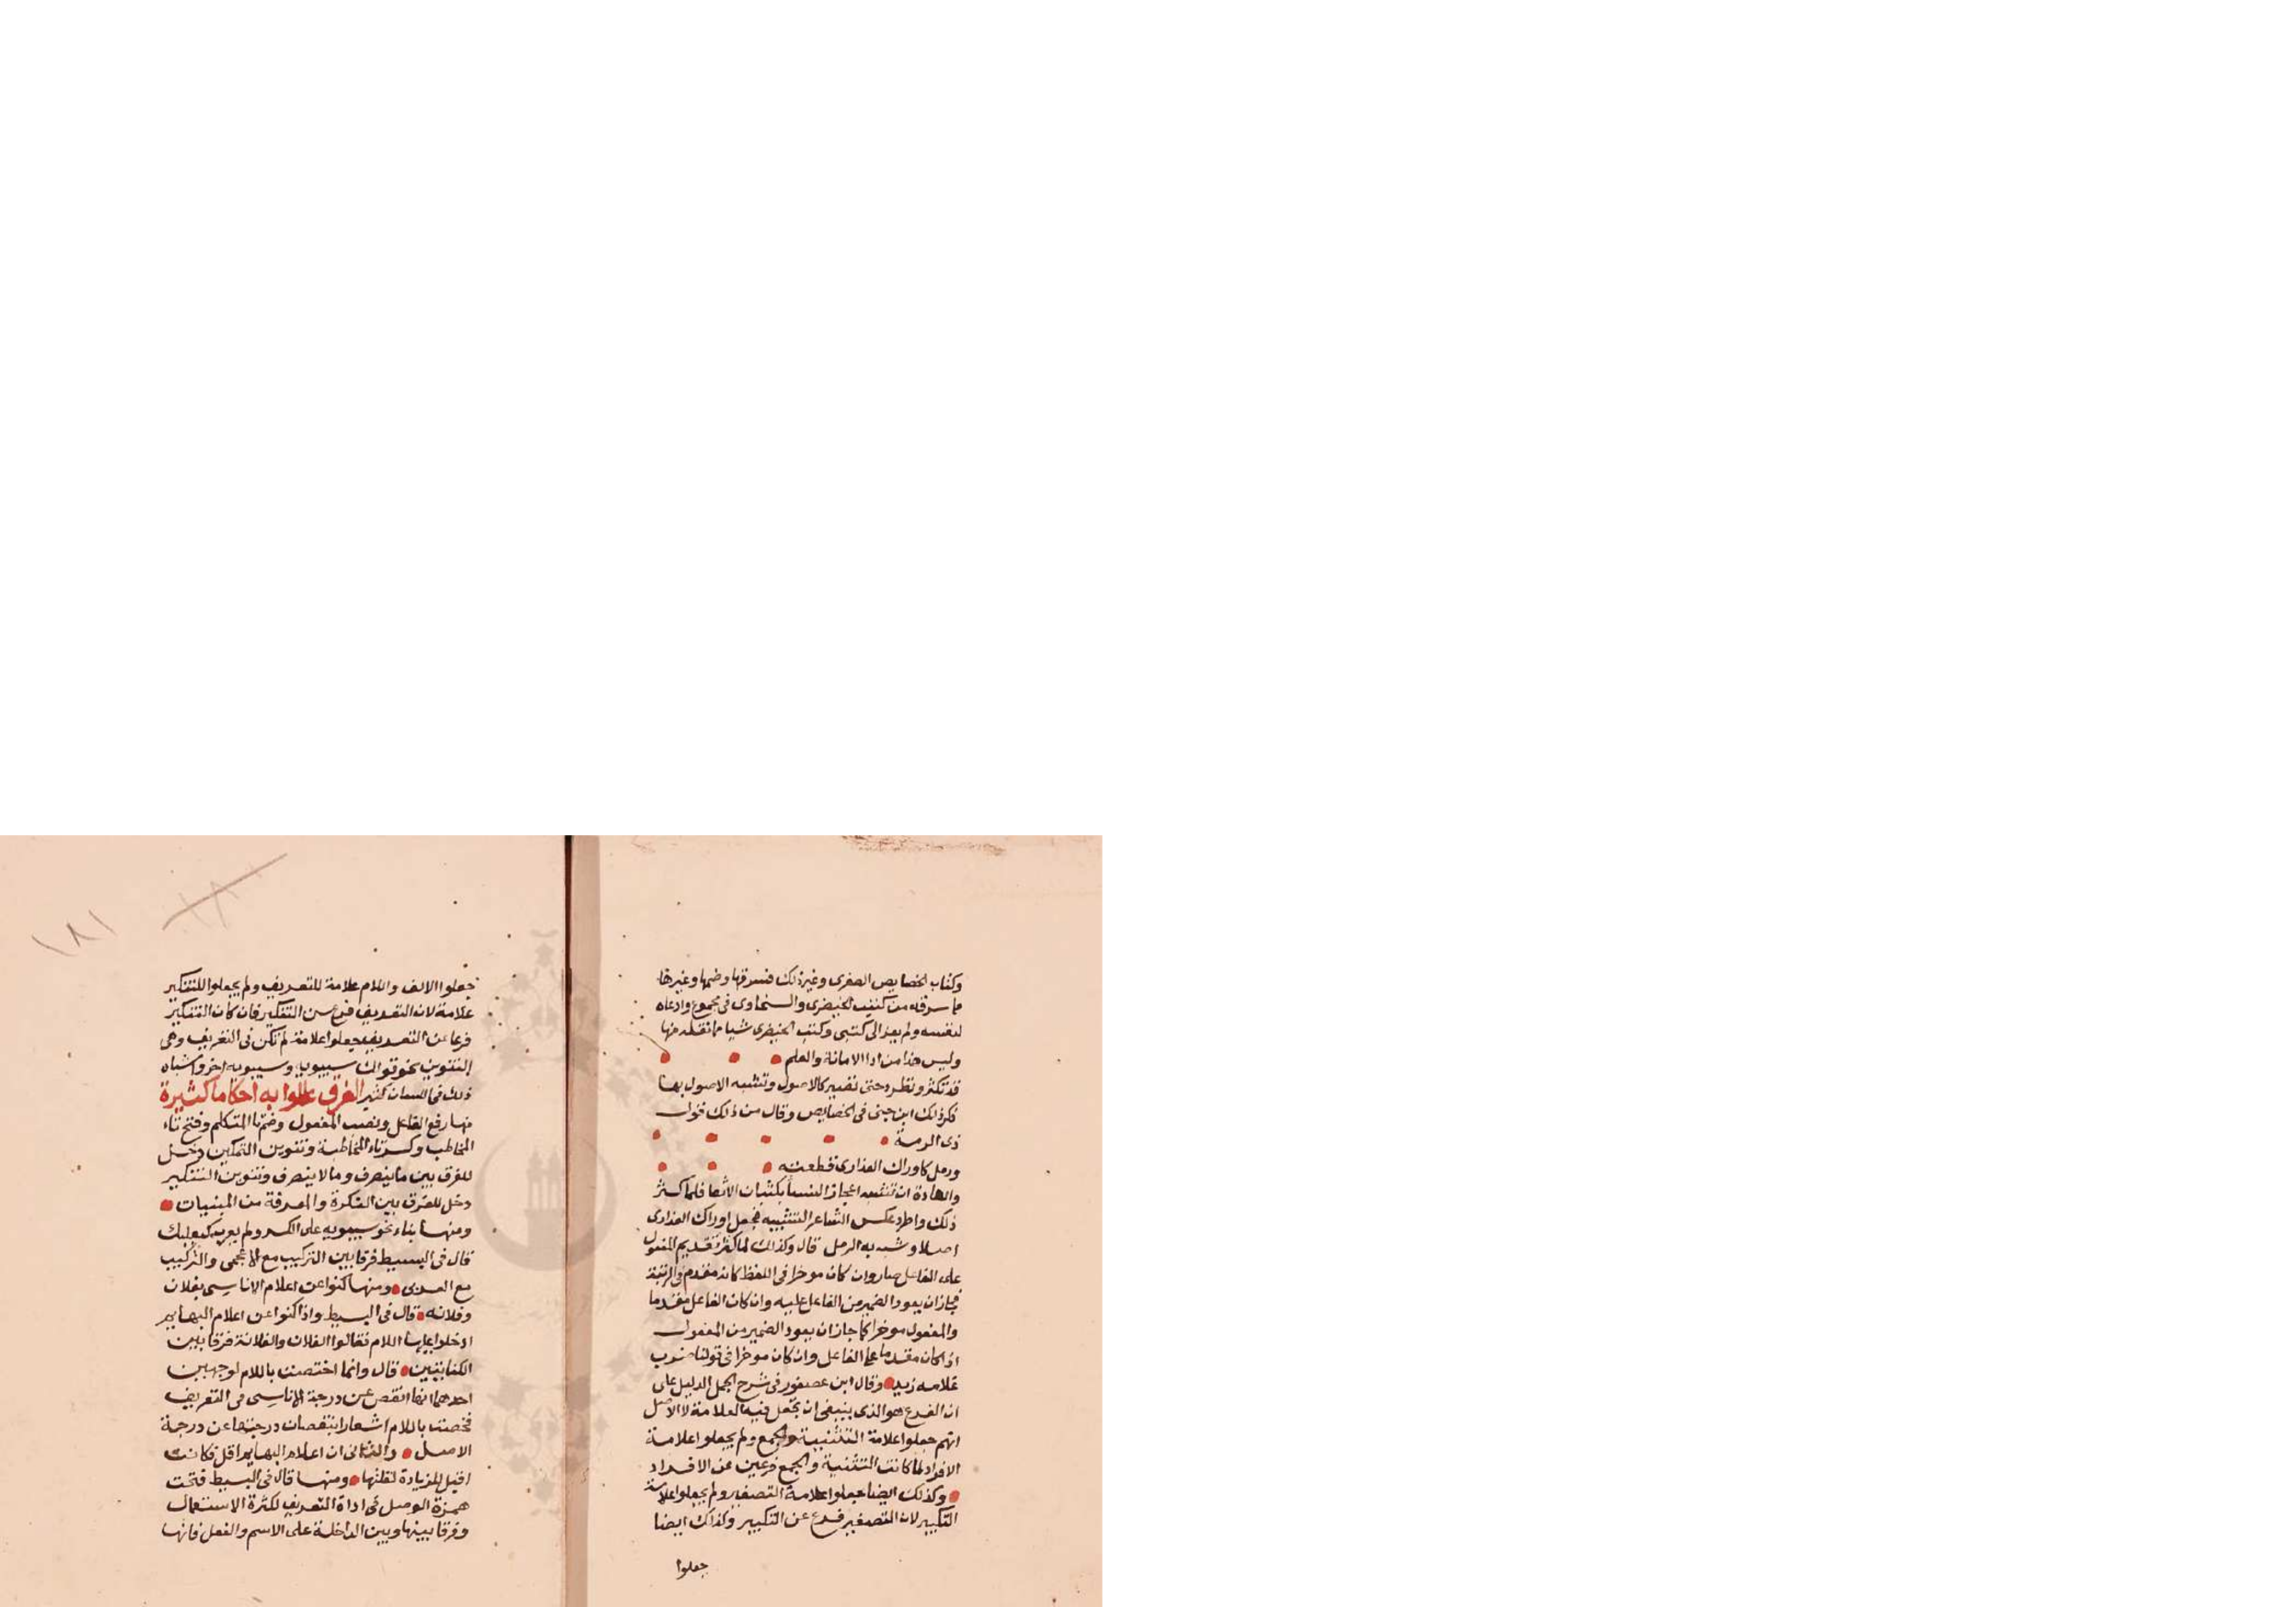 وكتاب الخصايص الصغرى وغير ذلك فسرقها وضمها وغيرها
مما سرقه من كتب الخيضرى والسخاوى فى مجموع وادعاه
لنفسه ولم يعز الى كتبى وكتب الخيضرى شيا مما نقله منها
وليس هذا من ادا الامانة والعلم
قد تكثر وتطرد حتى تصير كالاصول وتشبه الاصول بها
ذكر ذلك ابن جنى فى الخصايص وقال من ذلك قول
ذى الرمة
ورمل كاوراك العذارى قطعته
والعادة ان تشبه اعجاز النسا بكثبان الانقا فلما كثر
ذلك واطرد عكس الشاعر التشبيه فجعل اوراك العذارى
اصلا وشبه به الرمل قال وكذلك لما كثر تقديم المفعول
على الفاعل صار وان كان موخرا فى اللفظ كانه مقدم فى الرتبة
فجاز ان يعود الضمير من الفاعل عليه وان كان الفاعل مقدما
والمفعول موخرا كما جاز ان يعود الضمير من المفعول
اذا كان مقدما على الفاعل وان كان موخرا فى قولنا ضرب
غلامه زيد وقال ابن عصفور فى شرح الجمل الدليل على
ان الفرع هو الذى ينبغى ان تجعل فيه العلامة لا الاصل
انهم جعلوا علامة التثنية والجمع ولم يجعلوا علامة
الافراد لما كانت التثنية والجمع فرعين عن الافراد
وكذلك ايضا جعلوا علامة التصغير ولم يجعلوا علامة
التكبير لان التصغير فرع عن التكبير وكذلك ايضا
جعلوا
١٨١
جعلوا الالف واللام علامة للتعريف ولم يجعلوا للتنكير
علامة لان التعريف فرع من التنكير فان كان التنكير
فرعا عن التعريف جعلوا علامة لم تكن فى التعريف وهى
التنوين نحو قولك سيبويه وسيبويه اخر واشباه
ذلك فى اللسان كثير الفرق عللوا به احكاما كثيرة
منها رفع الفاعل ونصب المفعول وضم تا المتكلم وفتح تاء
المخاطب وكسر تاء المخاطبة وتنوين التمكين دخل
للفرق بين ما ينصرف وما لا ينصرف وتنوين التنكير
دخل للفرق بين النكرة والمعرفة من المبنيات
ومنها بناء نحو سيبويه على الكسر ولم يعرب كبعلبك
قال فى البسيط فرقا بين التركيب مع الاعجمى والتركيب
مع العربى ومنها كنوا عن اعلام الاناسى بفلان
وفلانه قال فى البسيط واذا كنوا عن اعلام البهايم
ادخلوا عليها اللام فقالوا الفلان والفلانة فرقا بين
الكنايتين قال وانما اختصت باللام لوجهين
احدهما انها انقص عن درجة الاناسى فى التعريف
فخصت باللام اشعارا بنقصان درجتها عن درجة
الاصل والثانى ان اعلام البهايم اقل فكانت
اقبل للزيادة لقلتها ومنها قال فى البسيط فتحت
همزة الوصل فى اداة التعريف لكثرة الاستعمال
وفرقا بينها وبين الداخلة على الاسم والفعل فانها